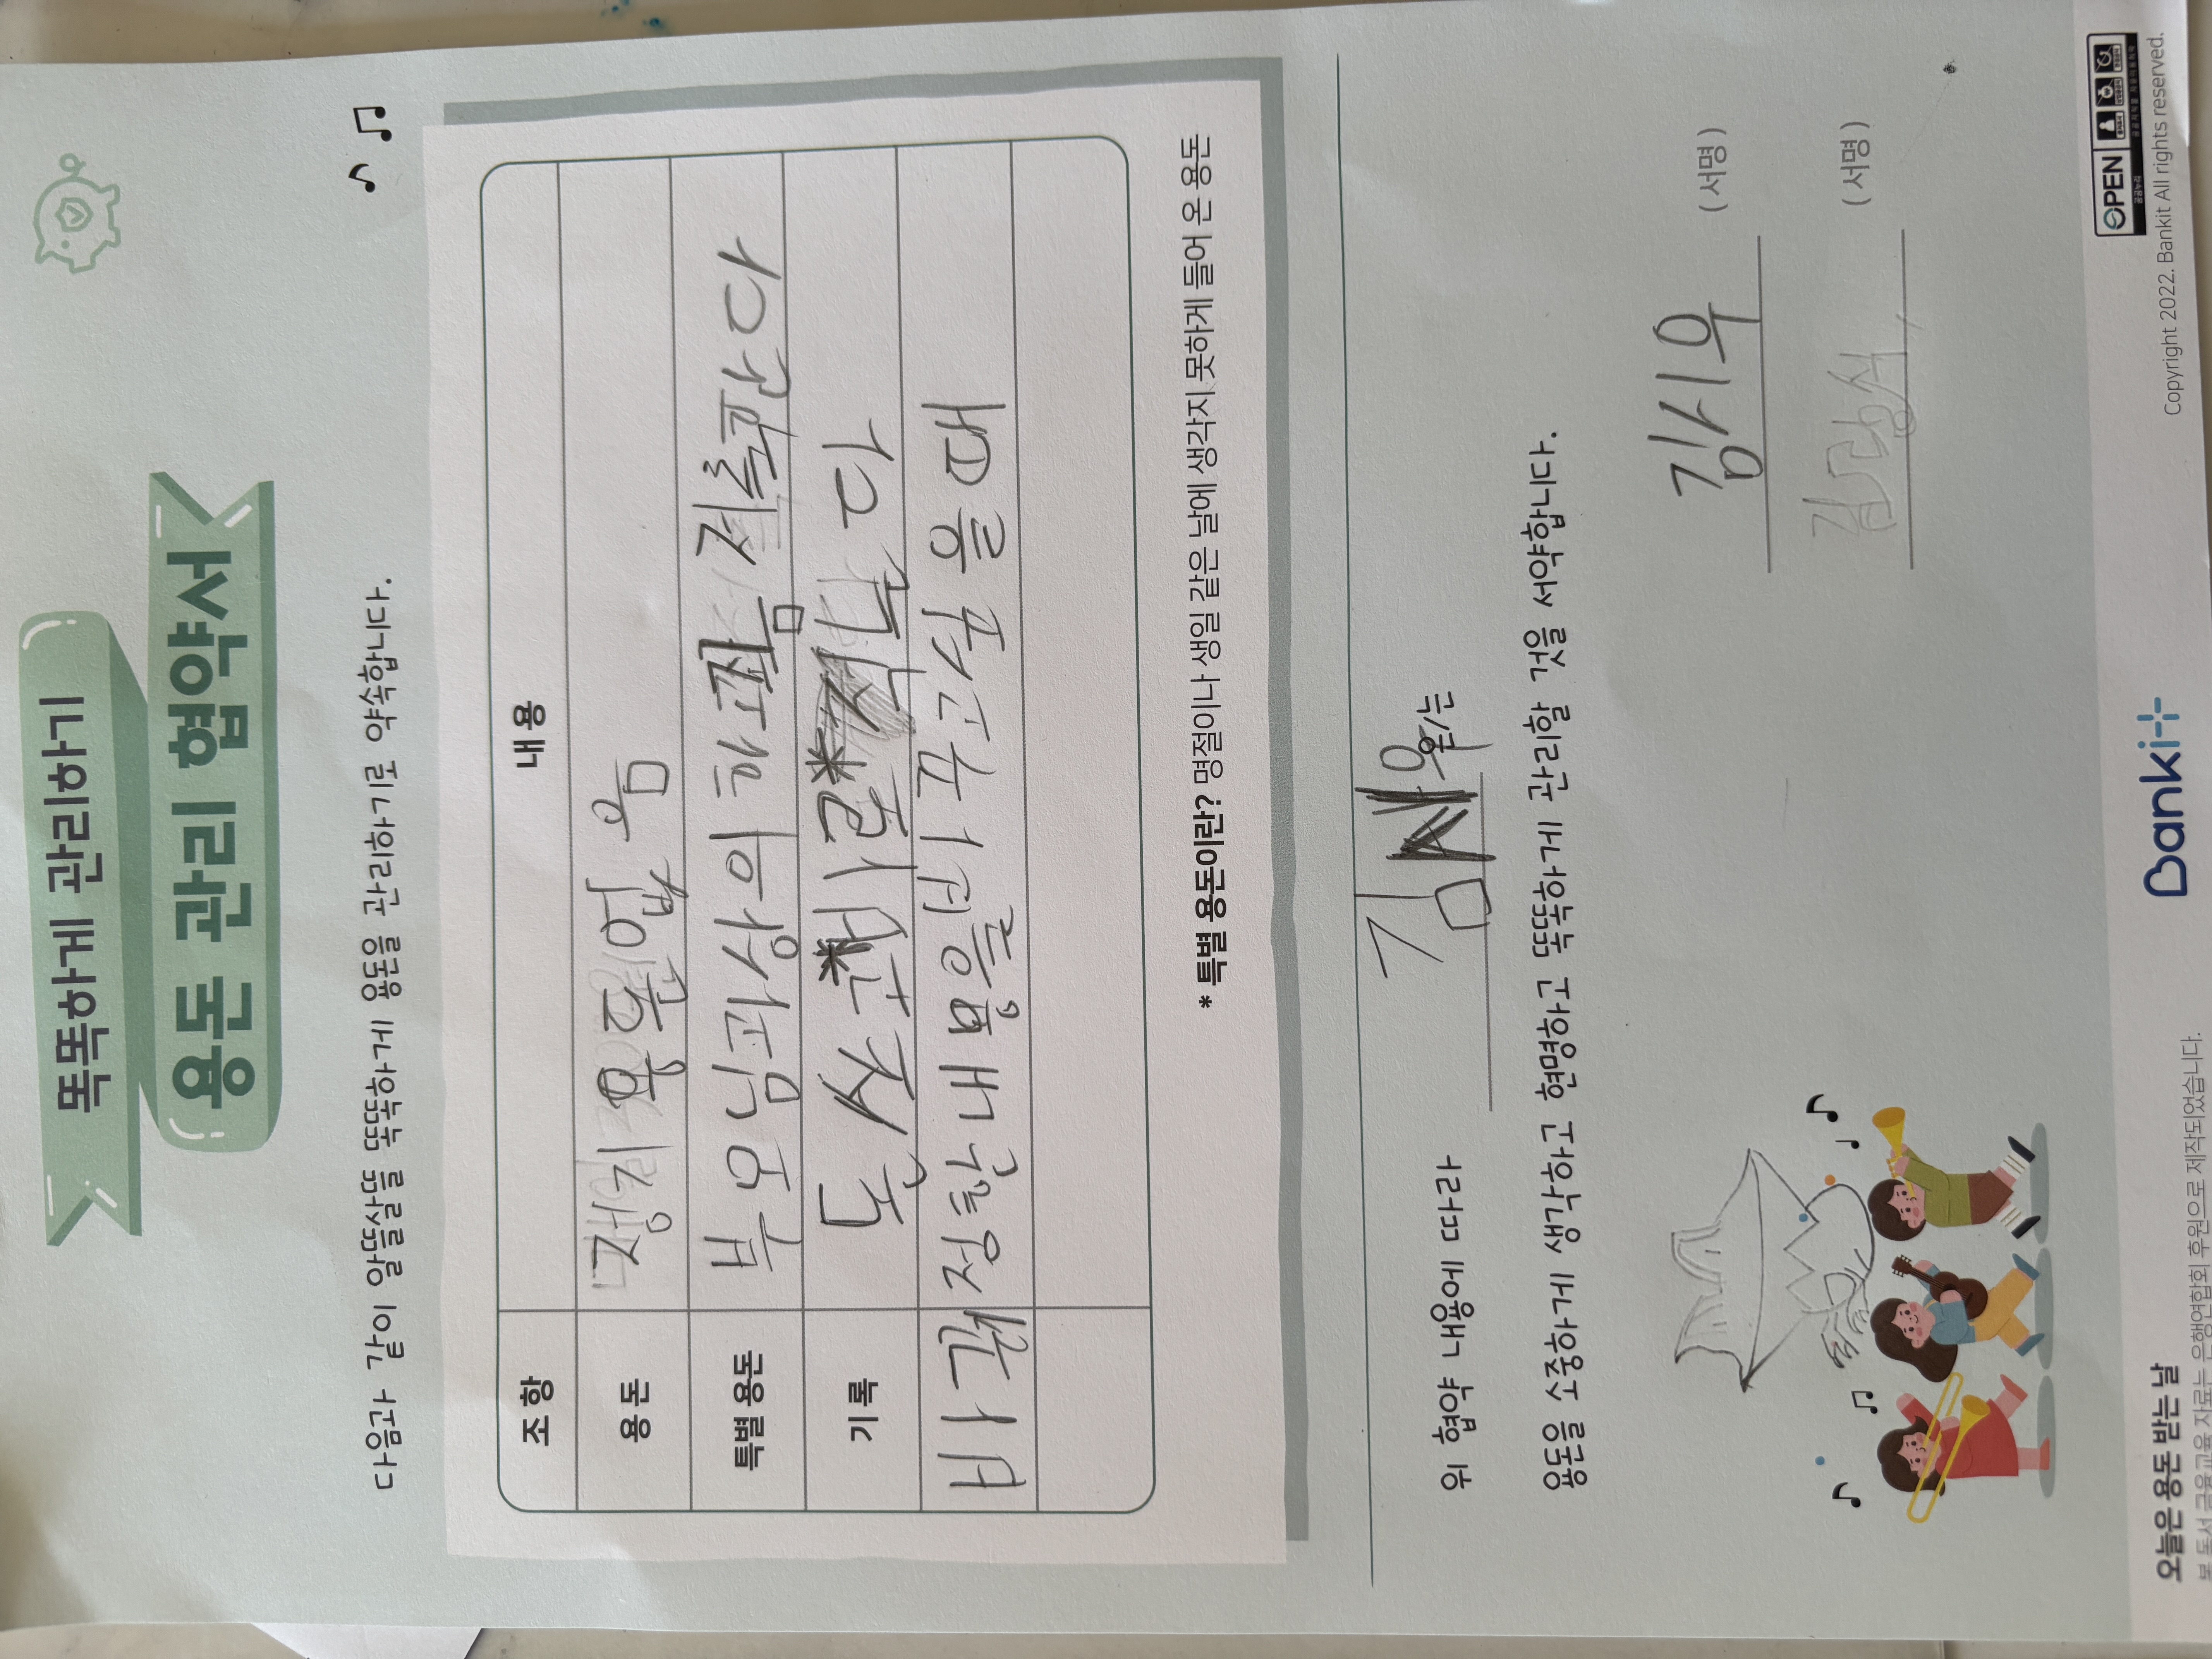 똑똑하게 관리하기
용돈 관리 협약서
다음과 같이 알뜰살뜰 똑똑하게 용돈을 관리하기로 약속합니다.
조항 내용
용돈 정기 용돈 없음
특별 용돈 부모님과 상의 하고 저축한다
기록 돈 쓰고 적는다
비고 정한 내용을 바꾸고 싶을 때
* 특별 용돈이란? 명절이나 생일 같은 날에 생각지 못하게 들어 온 용돈
위 협약 내용에 따라 김시우 은/는
용돈을 소중하게 생각하고 현명하고 똑똑하게 관리할 것을 서약합니다.
김시우 (서명)
(서명)
오늘은 용돈 받는 날
본 독서 금융교육 자료는 은행연합회 후원으로 제작되었습니다.
Banki+
OPEN 공공누리
Copyright 2022. Bankit All rights reserved.